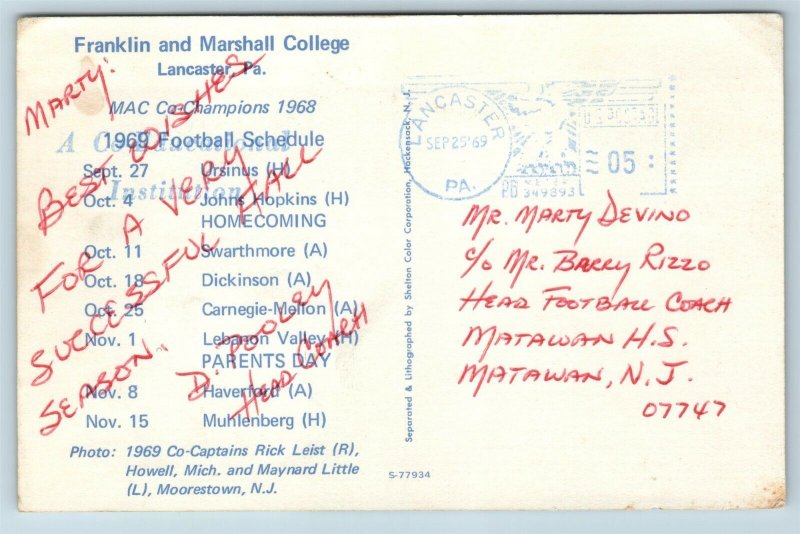 Franklin and Marshall College
Lancaster, Pa.
MAC Co-Champions 1968
1969 Football Schedule
A Coeducational
Institution
Sept. 27 Ursinus (H)
Oct. 4 Johns Hopkins (H)
HOMECOMING
Oct. 11 Swarthmore (A)
Oct. 18 Dickinson (A)
Oct. 25 Carnegie-Mellon (A)
Nov. 1 Lebanon Valley (H)
PARENTS DAY
Nov. 8 Haverford (A)
Nov. 15 Muhlenberg (H)
Photo: 1969 Co-Captains Rick Leist (R),
Howell, Mich. and Maynard Little
(L), Moorestown, N.J.
MARTY:
BEST WISHES
FOR A VERY
SUCCESSFUL FALL
SEASON.
D. POOLEY
HEAD COACH
Separated & Lithographed by Shelton Color Corporation, Hackensack, N. J.
S-77934
LANCASTER
SEP 25 '69
PA.
05
PB METER
349893
MR. MARTY DEVINO
c/o MR. BARRY RIZZO
HEAD FOOTBALL COACH
MATAWAN H.S.
MATAWAN, N.J.
07747